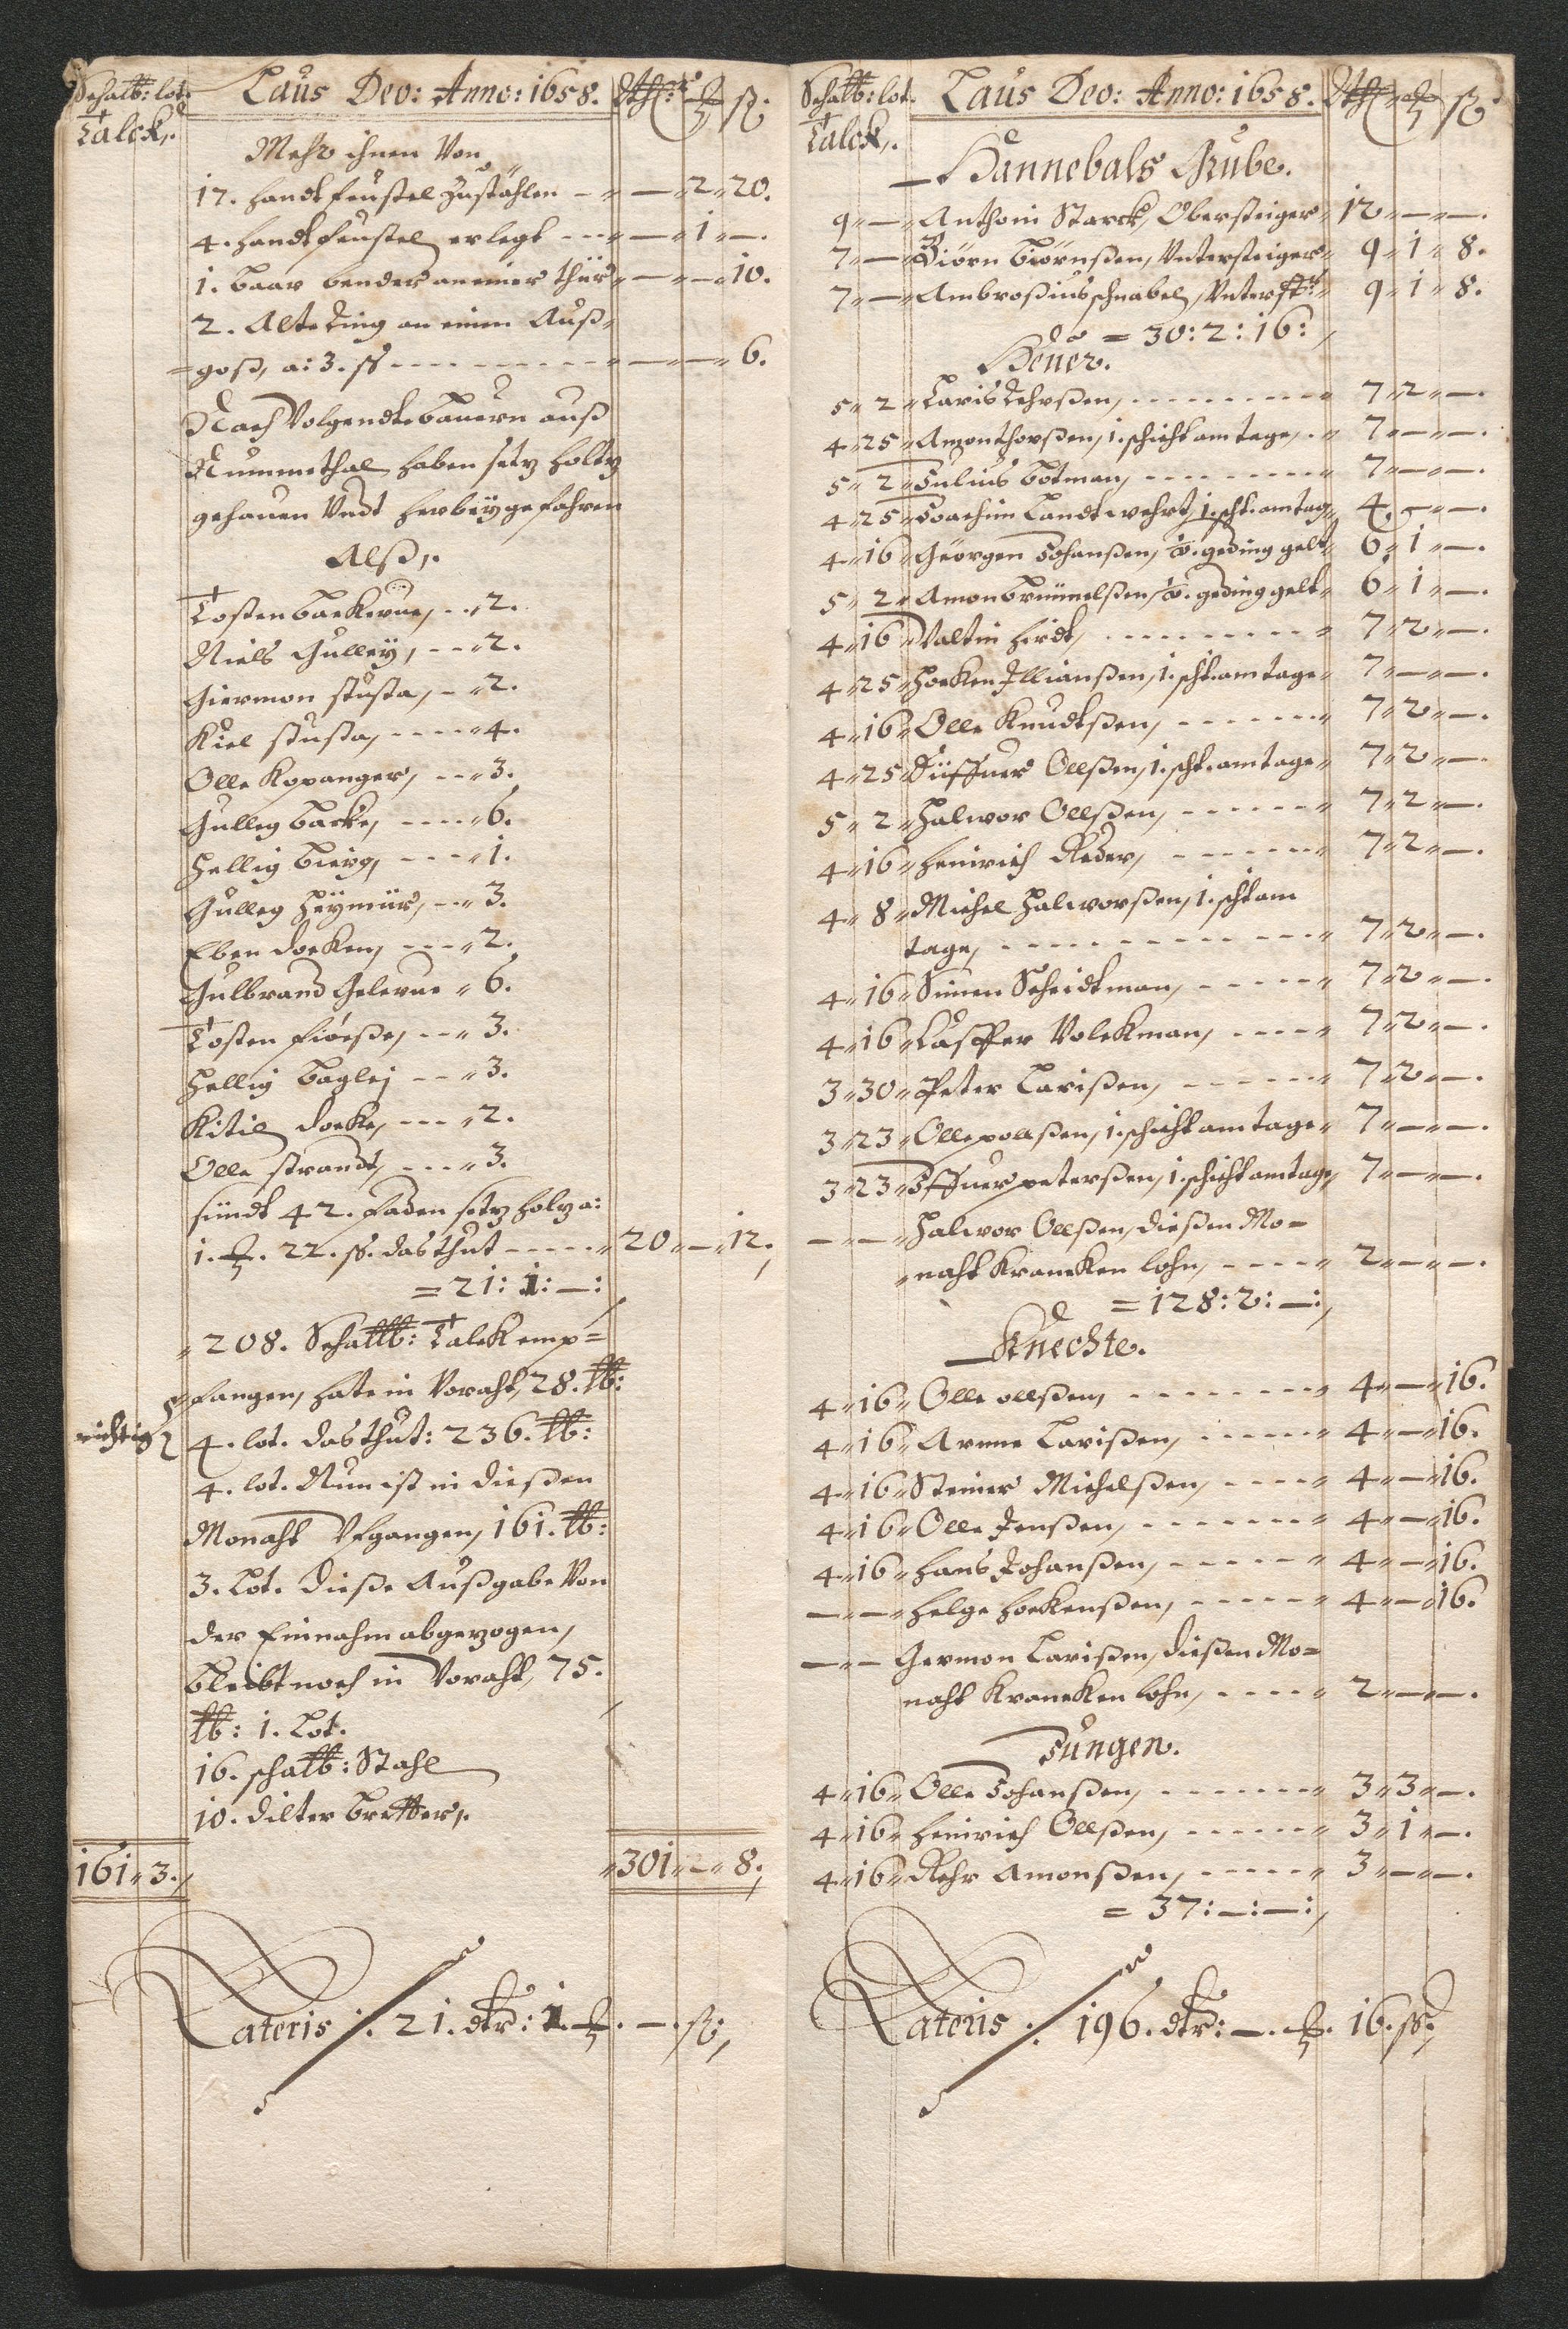 Schalb: lot.
Talck,.
Laus Deo: Anno: 1658.
Mehr ihnen Von
17. handt feustel Zustählen - - 2 20.
4. handt feustel erlegt - - - - 1 -.
1. baar bender an einer thür - - 10.
2. Alte Ring an einen Auß-
goß, a: 3. ß - - - - - - 6.
Nach Volgendte bauern auß
Nummethal haben setz holtz
gehauen Undt herbeÿ gefahren
Alß,.
Tosten backerue, - - 2.
Niels Gulleÿ, - - 2.
Giermon stusta, - 2.
Kiel stusta, - - - 4.
Olle Kopanger, - - 3.
Gulleg backe, - - - 6.
Hellig bierg, - - - 1.
Gulleg Heÿmür, - - 3.
Eben docken, - - - 2.
Gulbrand Gelerue 6.
Tosten fiøeße, - - 3.
Hellig baglej - - 3.
Kitil docke, - - - 2.
Olle strandt, - - - 3.
sündt 42. faden setz holz a:
1. 22. ß. das thut - - - 20 - 12.
= 21: 1: -:
208. Schalb: Talck emp=
fangen, hate in Voraht, 28. lb:
richtig
4. lot. das thut: 236. lb:
4. lot. Nun ist in dießen
Monaht Ufgangen, 161. lb:
3. Lot. dieße Außgabe Von
der Einnahm abgezogen,
bleibt noch in Voraht, 75.
lb: 1. Lot.
16. schalb: Stahl
10. dilter bretter,.
161 3. 301 2 8.
Lateris /. 21. dlr: 1. -. ß,
Schalb: lot.
Talck,.
Laus Deo: Anno: 1658.
Hannebals Grube.
9 - Anthoni Starck, Obersteiger 12 - -.
7 - Biörn biörnßen, Untersteiger 9 1 8.
7 - Ambroßius schnabel, Unterst: 9 1 8.
= 30: 2: 16:
Heuer.
5 2 Laris Rehrßen, - - - 7 2 -.
4 25 Amon thorßen, 1. schicht am tage, 7 - -.
5 2 Julius botman, - - - 7 - -.
4 25 Joachim Landtwehrt, 1. scht. am tag 4 - -.
4 16 Geörgen Johanßen, geding gelt 6 1 -.
5 2 Amon brunnelßen, geding gelt 6 1 -.
4 16 Valtin hirdt, - - - 7 2 -.
4 25 Hocken Illianßen, 1. scht. am tage 7 - -.
4 16 Olle Knudtßen, - - - 7 2 -.
4 25 Düffuer Ollßen, 1. scht. am tage 7 2 -.
5 2 Halwor Ollßen, - - - 7 2 -.
4 16 Heinrich Reder, - - - 7 2 -.
4 8 Michel Halworßen, 1. scht am
tage, - - - 7 2 -.
4 16 Simen Scheidtman, - - - 7 2 -.
4 16 Casper Volckman, - - - 7 2 -.
3 30 Peter Larißen, - - - 7 2 -.
3 23 Olle pollßen, 1. schicht am tage 7 - -.
3 23 Iffuer peterßen, 1. schicht am tage, 7 - -.
- - Halwor Ollßen, dießen Mo=
naht Krancken lohn, - - - 2 - -.
= 128: 2: -:
Knechte.
4 16 Olle ollßen, - - - 4 - 16.
4 16 Arnne Larißen, - - - 4 - 16.
4 16 Steiner Michelßen, - - - 4 - 16.
4 16 Olle Jenßen, - - - 4 - 16.
4 16 Hans Johanßen, - - - 4 - 16.
- - Helge Hockenßen, - - - 4 - 16.
- - Germon Larißen, dießen Mo=
naht Krancken lohn, - - - 2 - -.
Jungen.
4 16 Olle Johanßen, - - - 3 3 -.
4 16 Heinrich Ollßen, - - - 3 1 -.
4 16 Rehr Amonßen, - - - 3 - -.
= 37: -: -:
Lateris /. 196. dlr: -. 16. ß,